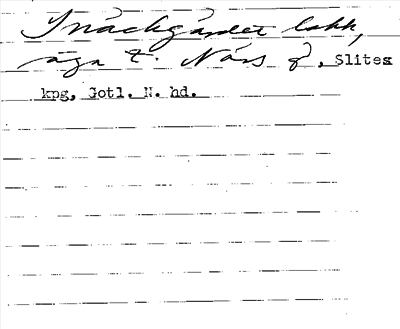 Snäckgärdet lokk,
äga t. Närs g, Slites
kpg, Gotl. N. hd.